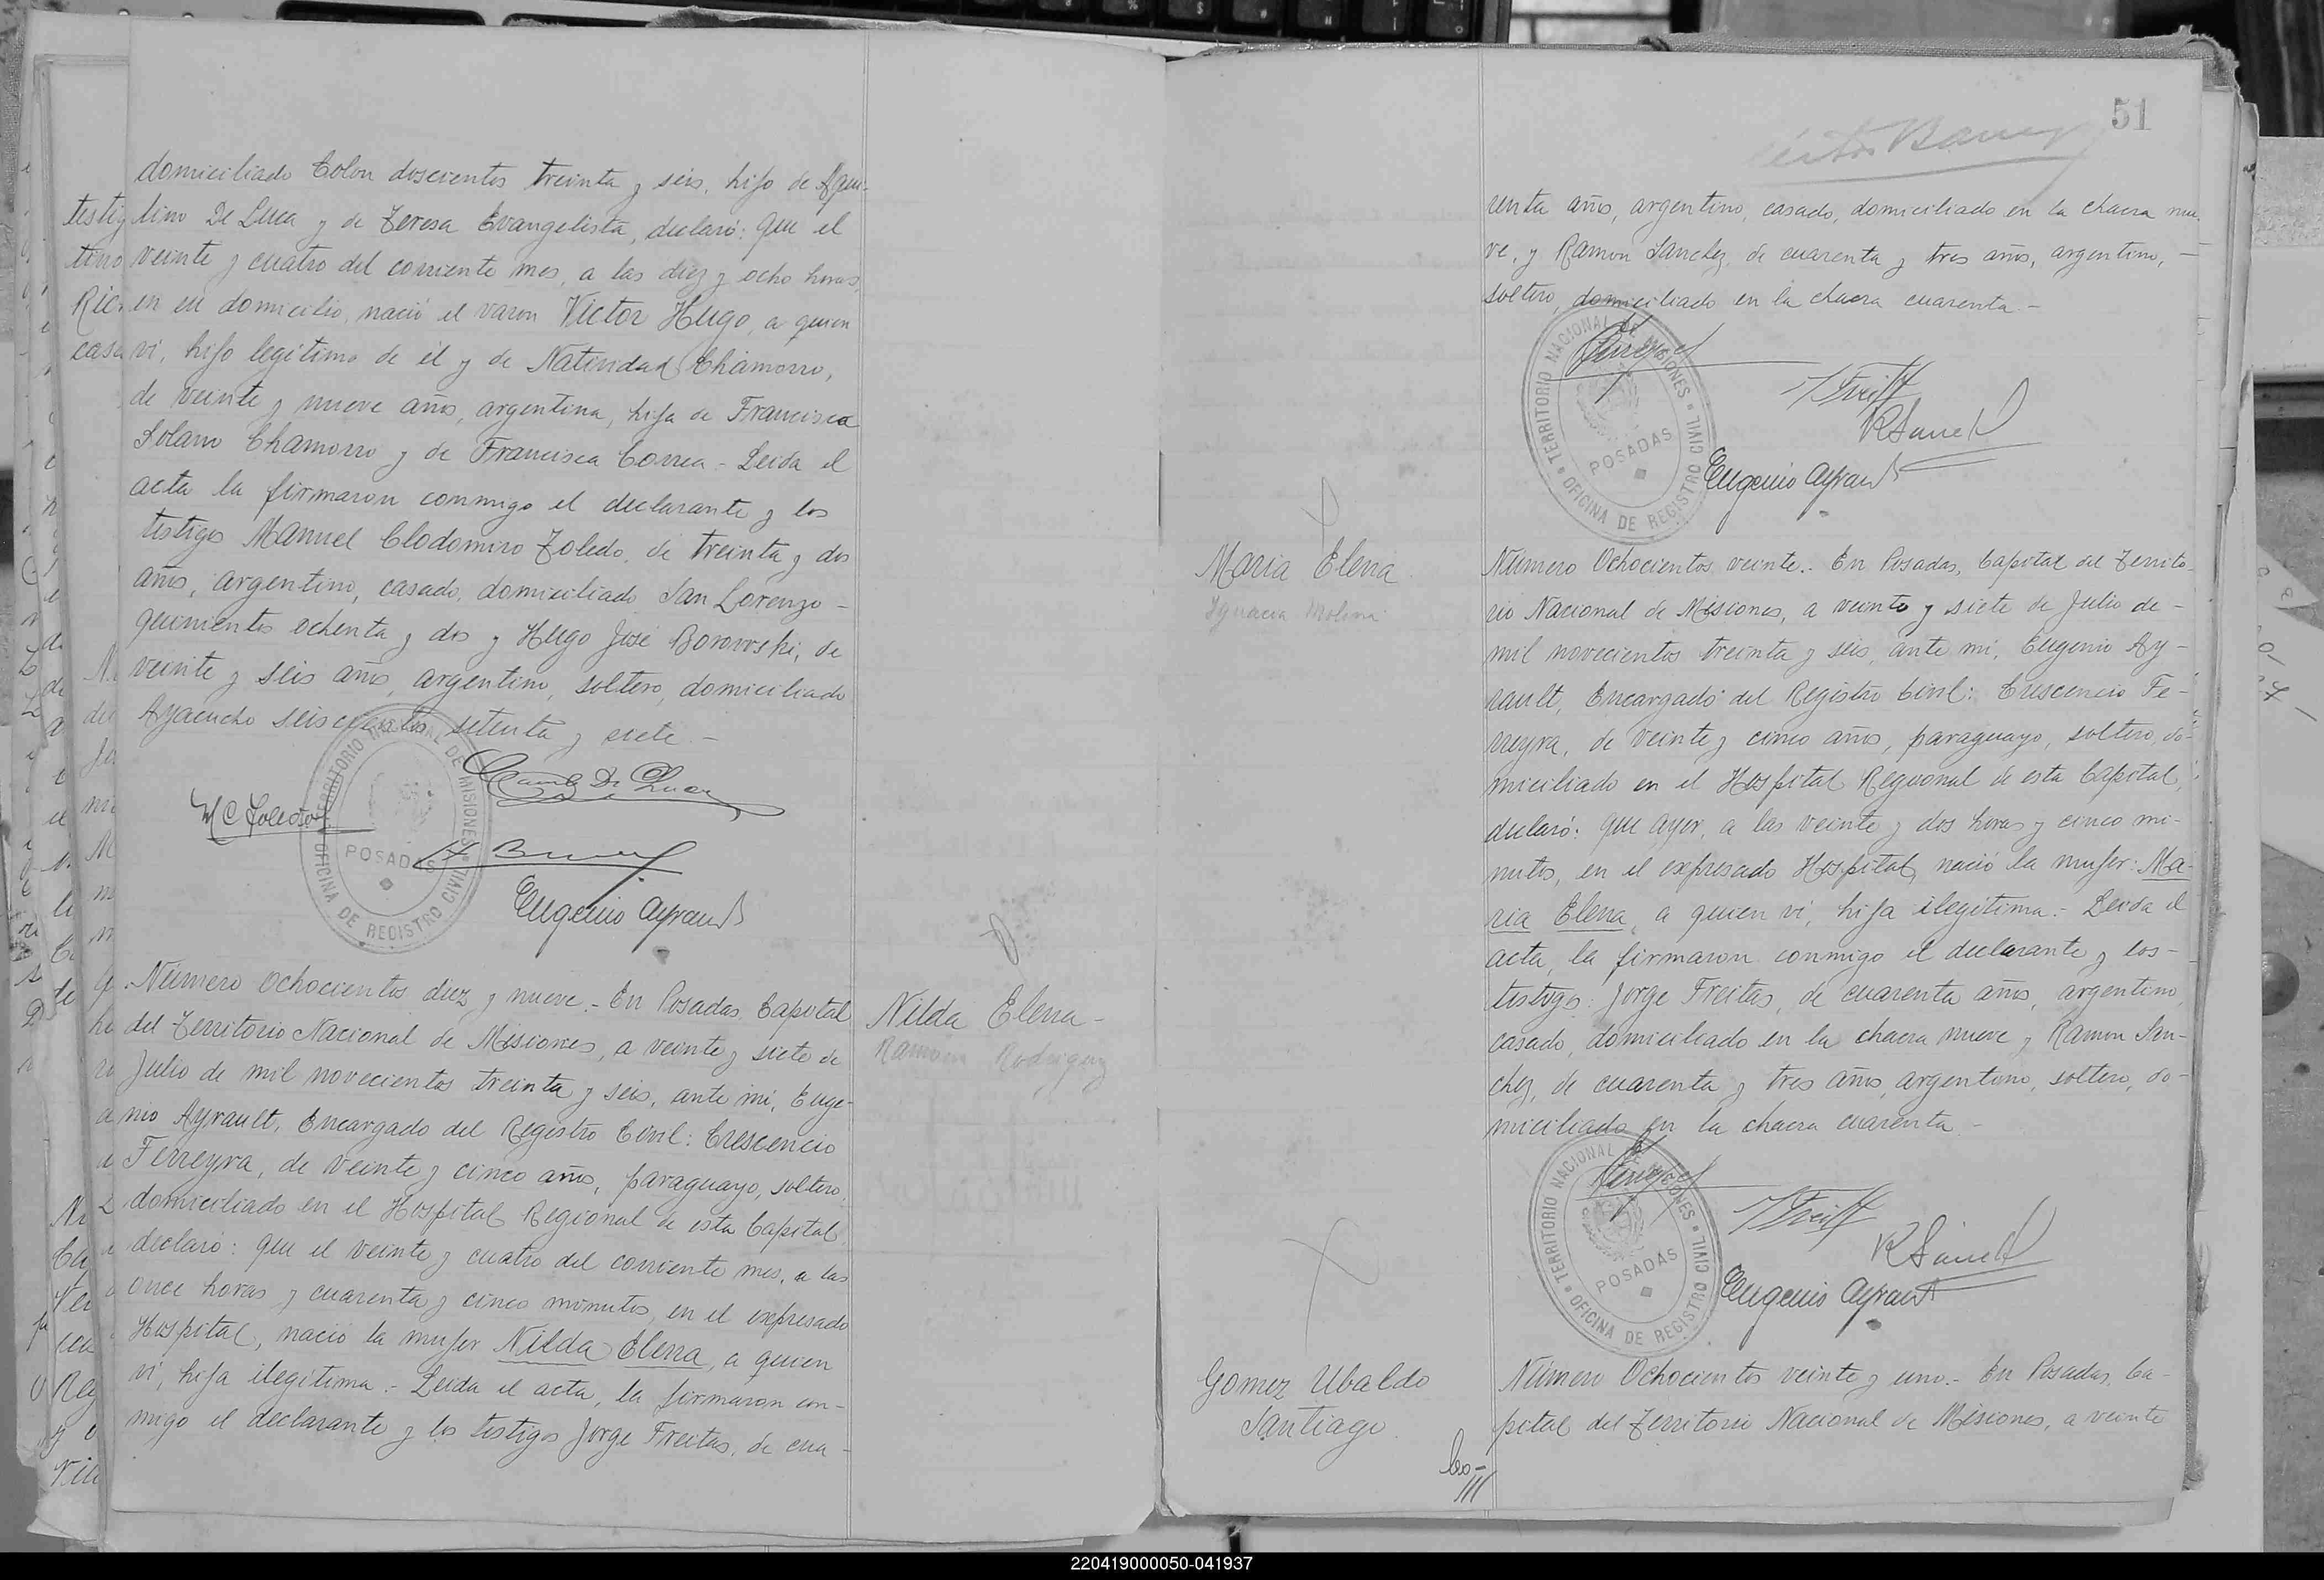 domiciliado Colon doscientos treinta y seis, hijo de Agus-
tino De Luca y de Teresa Evangelista, declaró: que el
veinte y cuatro del corriente mes, a las diez y ocho horas,
en su domicilio, nació el varon Victor Hugo, a quien
vi, hijo legítimo de él y de Natividad Chamorro,
de veinte y nueve años, argentina, hija de Francisco
Solano Chamorro y de Francisca Correa.- Leida el
acta la firmaron conmigo el declarante y los
testigos Manuel Clodomiro Toledo, de treinta y dos
años, argentino, casado, domiciliado San Lorenzo -
quinientos ochenta y dos y Hugo José Borowski, de
veinte y seis años, argentino, soltero, domiciliado
Ayacucho seiscientos setenta y siete.-
TERRITORIO NACIONAL DE MISIONES
OFICINA DE REGISTRO CIVIL
POSADAS
M C Toledo
Eugenio Ayrault
Nilda Elena-
Ramona Rodriguez
Número Ochocientos diez y nueve.- En Posadas, Capital
del Territorio Nacional de Misiones, a veinte y siete de
Julio de mil novecientos treinta y seis, ante mí, Euge-
nio Ayrault, Encargado del Registro Civil: Crescencio
Ferreyra, de veinte y cinco años, paraguayo, soltero,
domiciliado en el Hospital Regional de esta Capital,
declaró: que el veinte y cuatro del corriente mes, a las
once horas y cuarenta y cinco minutos, en el expresado
Hospital, nació la mujer Nilda Elena, a quien
vi, hija ilegítima.- Leida el acta, la firmaron con-
migo el declarante y los testigos Jorge Freitas, de cua-
51
renta años, argentino, casado, domiciliado en la chacra nue-
ve, y Ramon Sanchez, de cuarenta y tres años, argentino, -
soltero, domiciliado en la chacra cuarenta.-
TERRITORIO NACIONAL DE MISIONES
OFICINA DE REGISTRO CIVIL
POSADAS
Eugenio Ayrault
Maria Elena
Ignacia Molina
Número Ochocientos veinte.- En Posadas, Capital del Territo-
rio Nacional de Misiones, a veinte y siete de Julio de -
mil novecientos treinta y seis, ante mí, Eugenio Ay-
rault, Encargado del Registro Civil: Crescencio Fe-
rreyra, de veinte y cinco años, paraguayo, soltero, do-
miciliado en el Hospital Regional de esta Capital,
declaró: que ayer, a las veinte y dos horas y cinco mi-
nutos, en el expresado Hospital, nació la mujer: Ma-
ria Elena, a quien vi, hija ilegítima.- Leida el
acta, la firmaron conmigo el declarante y los-
testigos: Jorge Freitas, de cuarenta años, argentino,
casado, domiciliado en la chacra nueve y Ramon San-
chez, de cuarenta y tres años, argentino, soltero, do-
miciliado en la chacra cuarenta.-
TERRITORIO NACIONAL DE MISIONES
OFICINA DE REGISTRO CIVIL
POSADAS
Eugenio Ayrault
Gomez Ubaldo
Santiago.
Número Ochocientos veinte y uno.- En Posadas, Ca-
pital del Territorio Nacional de Misiones, a veinte
220419000050-041937